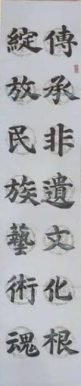 傳承非遺文化根
綻放民族藝術魂